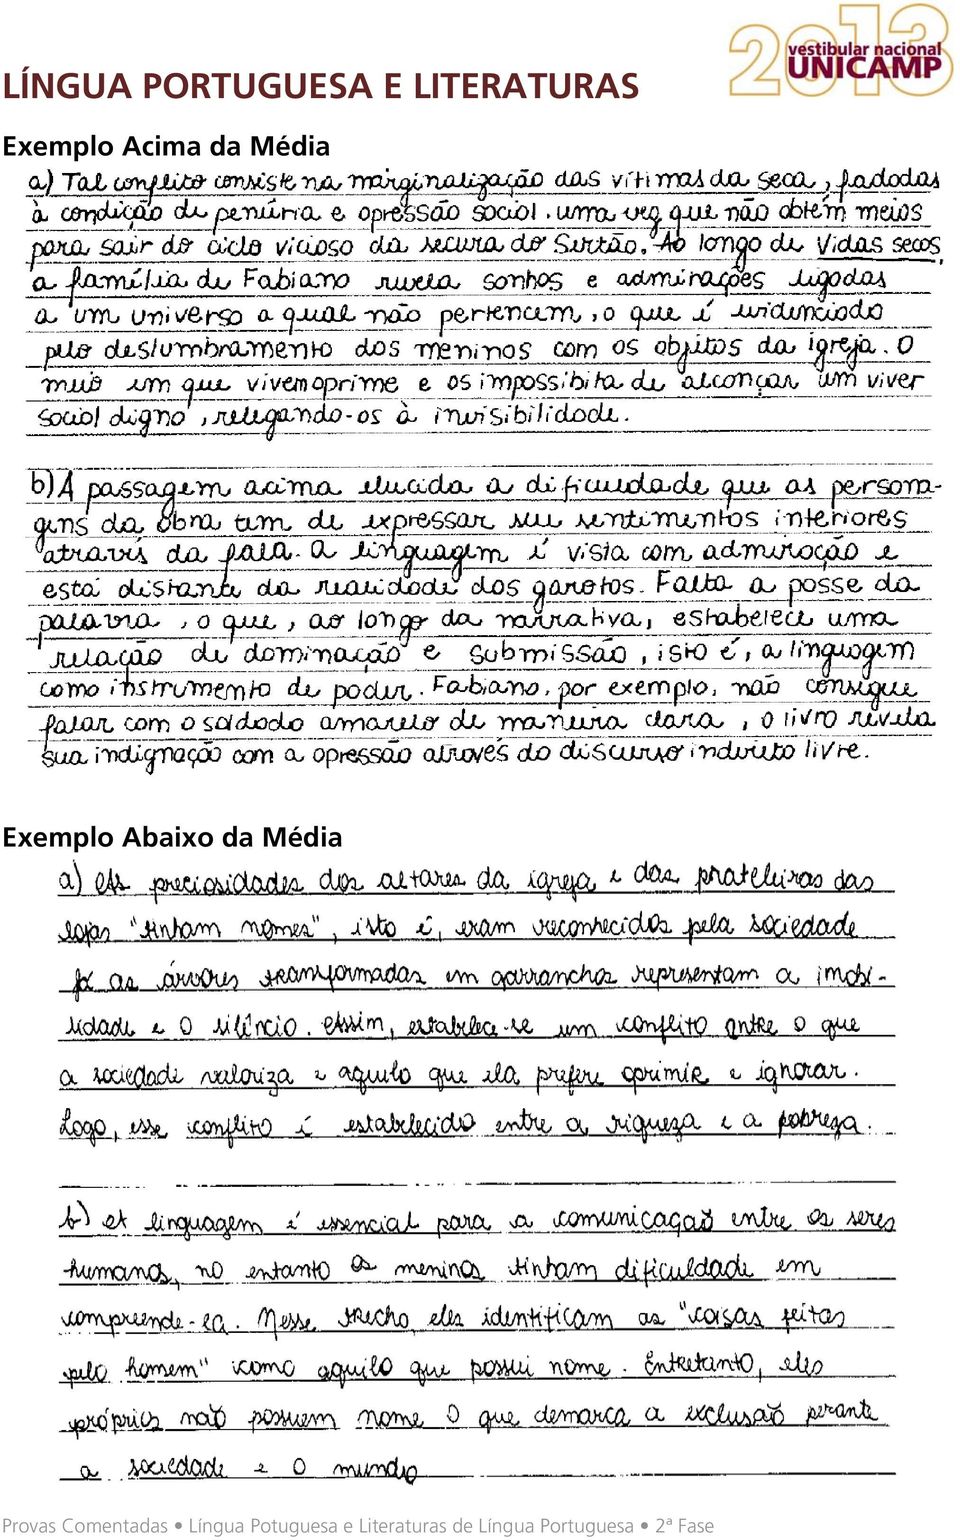 2013
vestibular nacional
UNICAMP
LÍNGUA PORTUGUESA E LITERATURAS
Exemplo Acima da Média
a) Tal conflito consiste na marginalização das vítimas da seca, fadadas
à condição de penúria e opressão social, uma vez que não obtêm meios
para sair do ciclo vicioso da secura do Sertão. Ao longo de Vidas secas,
a família de Fabiano revela sonhos e admirações ligadas
a um universo a qual não pertencem, o que é evidenciado
pelo deslumbramento dos meninos com os objetos da igreja. O
meio em que vivem oprime e os impossibita de alcançar um viver
social digno, relegando-os à invisibilidade.
b) A passagem acima elucida a dificuldade que as persona-
gens da obra tem de expressar seu sentimentos interiores
através da fala. A linguagem é vista com admiração e
está distante da realidade dos garotos. Falta a posse da
palavra, o que, ao longo da narrativa, estabelece uma
relação de dominação e submissão, isto é, a linguagem
como instrumento de poder. Fabiano, por exemplo, não consegue
falar com o soldado amarelo de maneira clara, o livro revela
sua indignação com a opressão através do discurso indireto livre.
Exemplo Abaixo da Média
a) As preciosidades dos altares da igreja e das prateleiras das
lojas "tinham nomes", isto é, eram reconhecidos pela sociedade
Já as árvores transformadas em garranchos representam a imobi-
lidade e o silêncio. Assim, estabelece-se um conflito entre o que
a sociedade valoriza e aquilo que ela prefere oprimir e ignorar.
Logo, esse conflito é estabelecido entre a riqueza e a pobreza.
b) A linguagem é essencial para a comunicação entre os seres
humanos, no entanto os meninos tinham dificuldade em
compreende-la. Nesse trecho, eles identificam as "coisas feitas
pelo homem" como aquilo que possui nome. Entretanto, eles
próprios não possuem nome o que demarca a exclusão perante
a sociedade e o mundo
Provas Comentadas • Língua Potuguesa e Literaturas de Língua Portuguesa • 2ª Fase